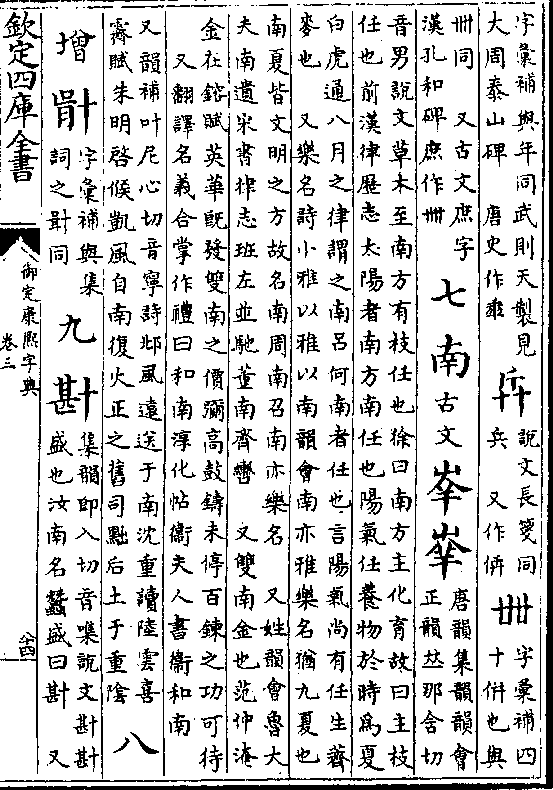 字彙補與年同武則天製見
大周泰山碑 唐史作
說文長箋同
兵 又作㑂
卌
字彙補四
十併也與
卌同 又古文庶字
漢孔和碑庶作卌
七 南 古文 𡴖
唐韻集韻韻會
正韻𠀤那含切
音男說文草木至南方有枝任也徐曰南方主化育故曰主枝
任也前漢律歷志太陽者南方南任也陽氣任養物於時爲夏
白虎通八月之律謂之南呂何南者任也言陽氣尚有任生薺
麥也 又樂名詩小雅以雅以南韻會南亦雅樂名猶九夏也
南夏皆文明之方故名南周南召南亦樂名 又姓韻會魯大
夫南遺宋書律志班左並馳董南齊轡 又雙南金也范仲淹
金在鎔賦英華旣發雙南之價彌高鼓鑄未停百鍊之功可待
又翻譯名義合掌作禮曰和南淳化帖衞夫人書衞和南
又韻補叶尼心切音寧詩邶風遠送于南沈重讀陸雲喜
霽賦朱明啓候凱風自南復火正之舊司黜后土于重陰
八
增
字彙補與集
詞之 同
九 卙
集韻卽入切音㗱說文卙卙
盛也汝南名蠶盛曰卙 又
欽定四庫全書
御定康熙字典
卷三